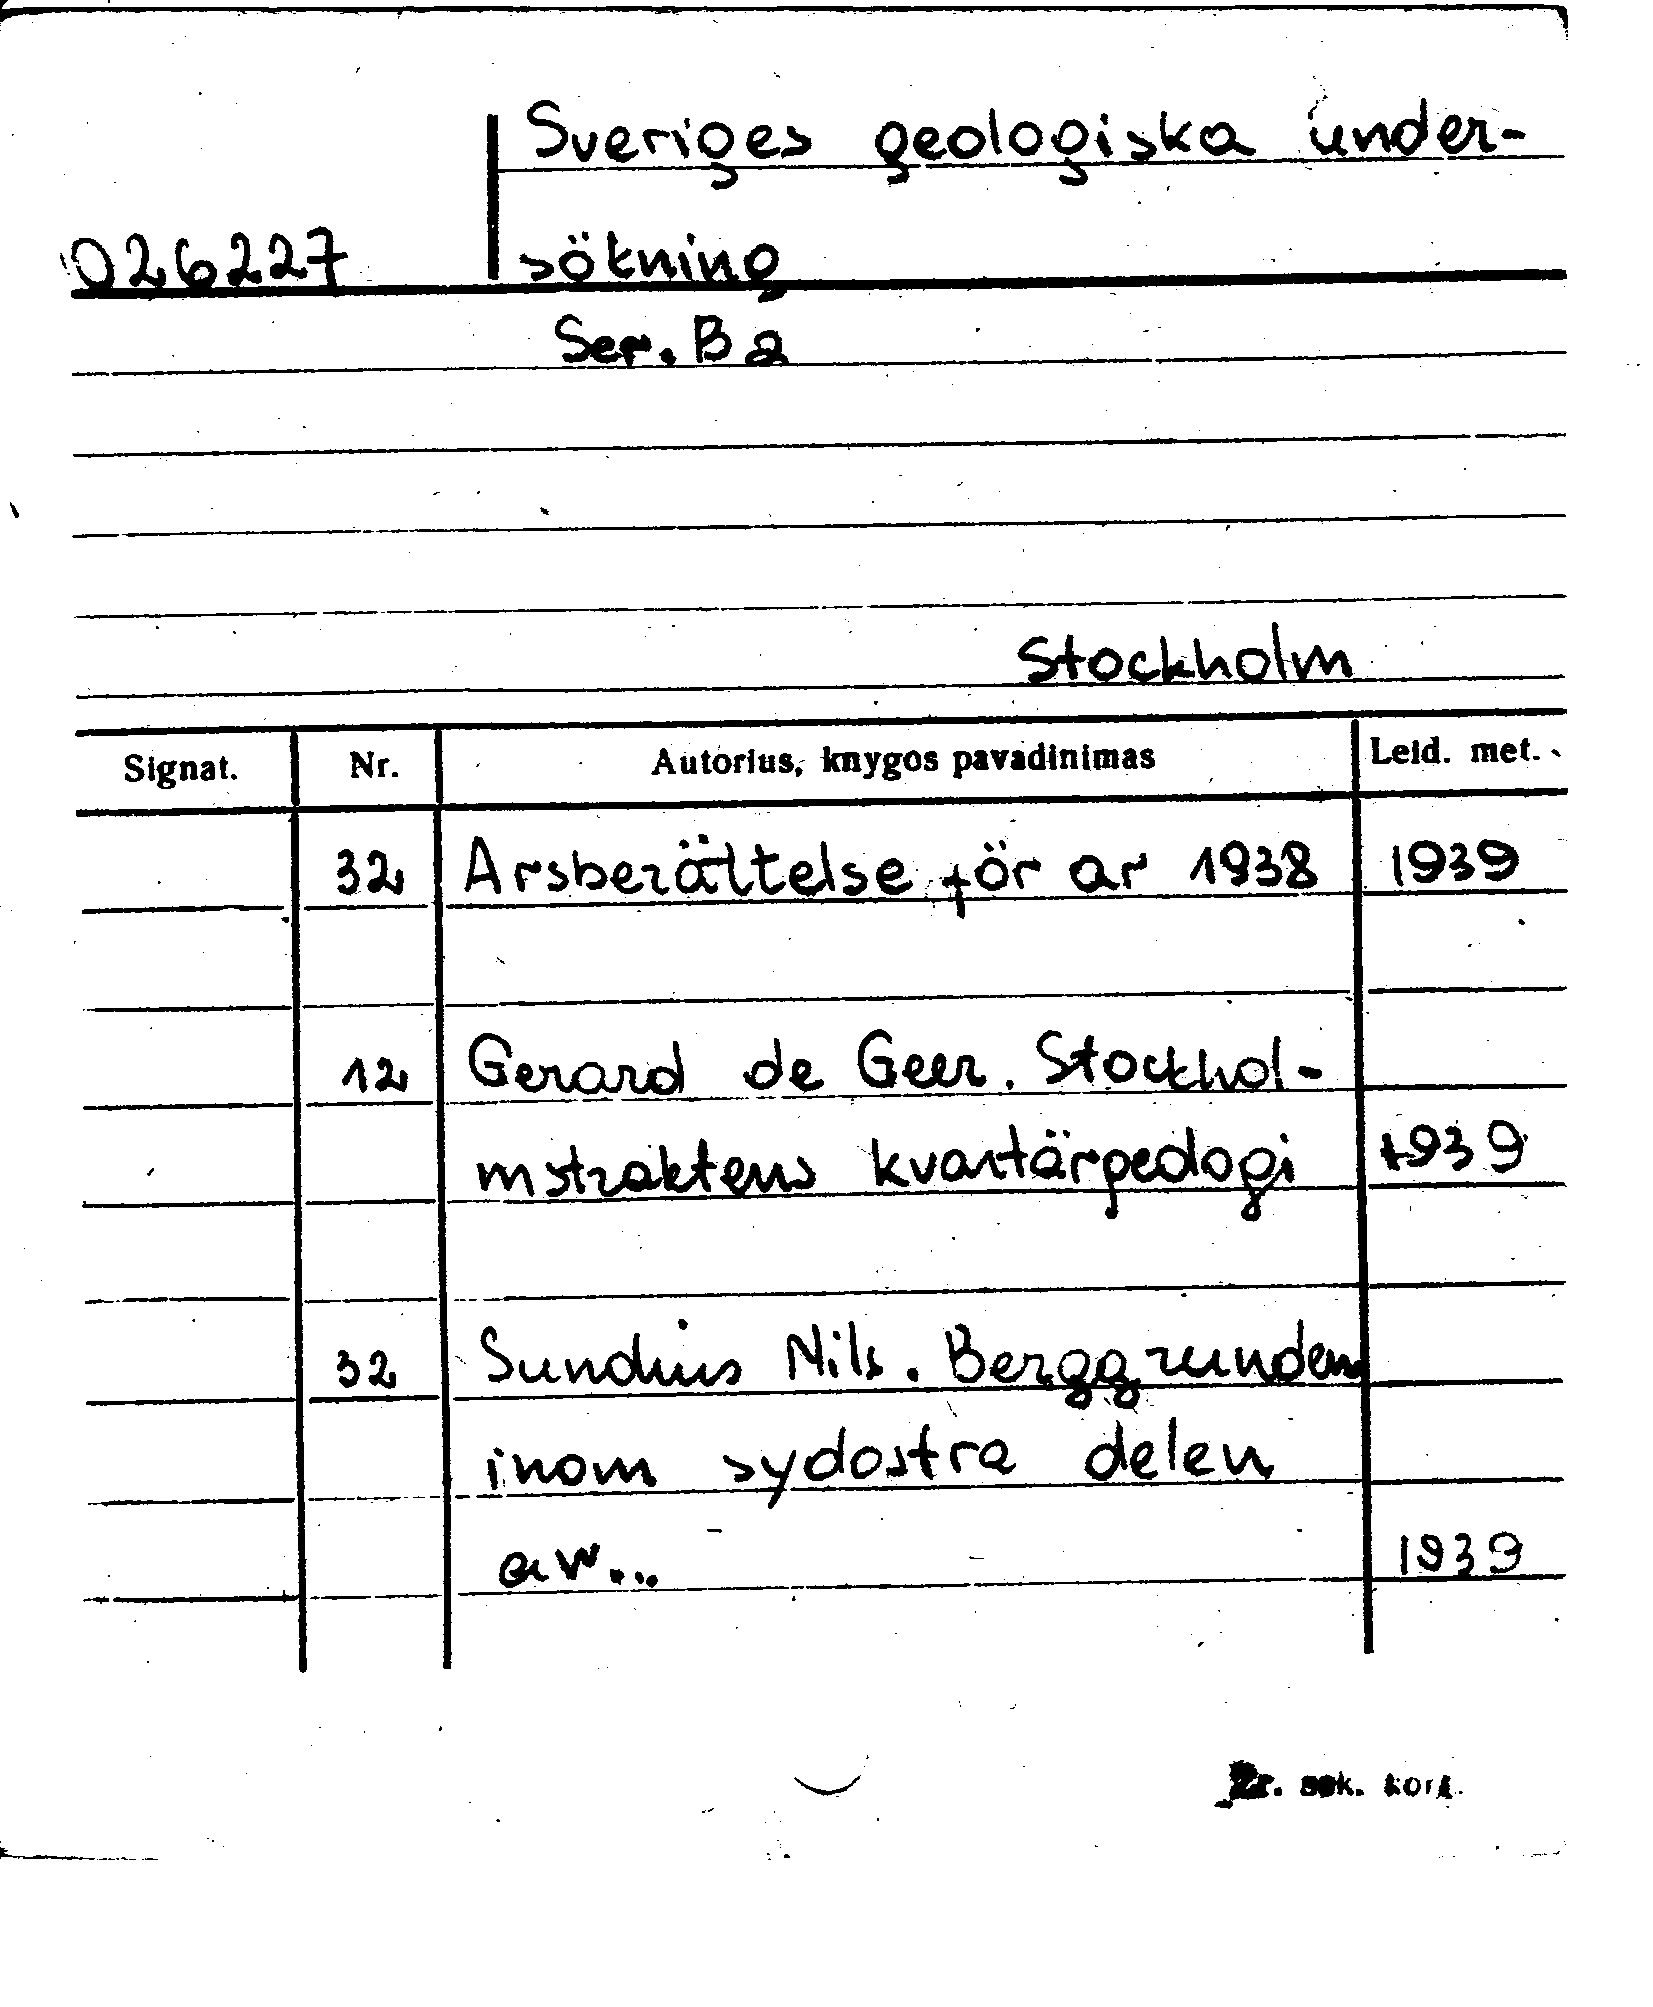 Sveriges geologiska under-
026227 sökning
Ser. Ba
Stockholm
Signat. Nr. Autorius, knygos pavadinimas Leid. met.
32 Arsberättelse för ar 1938 1939
12 Gerard de Geer. Stockhol-
mstraktens kvartärpedogi 1939
32 Sundius Nils. Berggrunden
inom sydostra delen
av... 1939
Žr. sek. kort.